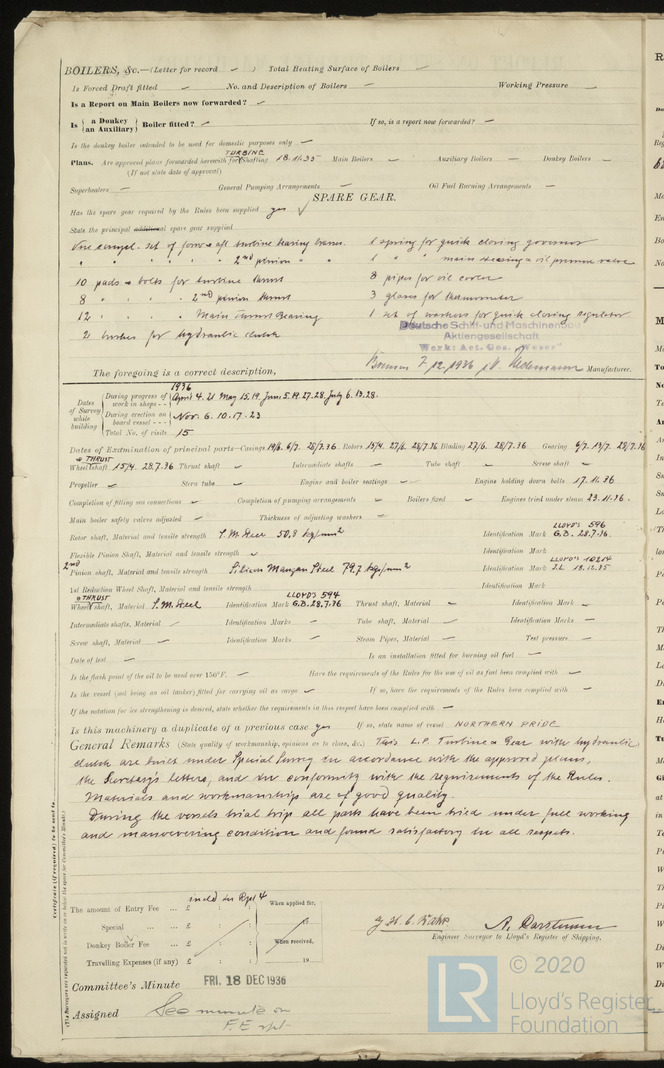 BOILERS, &c.—(Letter for record ✓ ) Total Heating Surface of Boilers —
Is Forced Draft fitted ✓ No. and Description of Boilers ✓ Working Pressure —
Is a Report on Main Boilers now forwarded? ✓
Is { a Donkey / an Auxiliary } Boiler fitted? ✓ If so, is a report now forwarded? —
Is the donkey boiler intended to be used for domestic purposes only —
TURBINE
Plans. Are approved plans forwarded herewith for Shafting 18.11.35 Main Boilers — Auxiliary Boilers — Donkey Boilers —
(If not state date of approval)
Superheaters — General Pumping Arrangements — Oil Fuel Burning Arrangements —
SPARE GEAR.
Has the spare gear required by the Rules been supplied yes ✓
State the principal additional spare gear supplied
One compl. set of forw & aft turbine bearing 1 spring for quick closing governor
" " " " 2nd pinion " " 1 " " main steam & oil pressure valve
10 pads & bolts for turbine thrust 8 pipes for oil cooler
8 " " " 2nd pinion thrust 3 glases for thermometer
12 " " " Main Thrust Bearing 1 set of washers for quick closing regulator
2 bushes for hydraulic clutch
Deutsche Schiff- und Maschinenbau
Aktiengesellschaft
Werk: Act. Ges. „Weser"
The foregoing is a correct description, Bremen 7.12.1936 Manufacturer.
1936
Dates of Survey while building
During progress of work in shops - - April 4. 21 May 15.19. June 5.19.27.28. July 6.13.28.
During erection on board vessel - - - Nov. 6. 10. 17. 23
Total No. of visits 15
Dates of Examination of principal parts—Casings 19/6. 6/7. 28/7.36. Rotors 15/4. 27/6. 28/7.36 Blading 27/6. 28/7.36. Gearing 6/7. 13/7. 28/7.36
& THRUST
Wheel shaft 15/4. 28.7.36 Thrust shaft ✓ Intermediate shafts — Tube shaft ✓ Screw shaft —
Propeller ✓ Stern tube ✓ Engine and boiler seatings ✓ Engine holding down bolts 17.11.36
Completion of fitting sea connections ✓ Completion of pumping arrangements — Boilers fixed ✓ Engines tried under steam 23.11.36.
Main boiler safety valves adjusted — Thickness of adjusting washers —
Rotor shaft, Material and tensile strength S.M. Steel 50,8 kg/mm2 Identification Mark LLOYD'S 596 G.B. 28.7.36.
Flexible Pinion Shaft, Material and tensile strength ✓ Identification Mark
2nd Pinion shaft, Material and tensile strength Silicon Mangan Steel 79,7 kgs/mm2 Identification Mark LLOYD'S 10214 J.L. 18.12.35
1st Reduction Wheel Shaft, Material and tensile strength Identification Mark
& THRUST
Wheel shaft, Material S.M. Steel Identification Mark LLOYD'S 594 G.B. 28.7.36 Thrust shaft, Material — Identification Mark —
Intermediate shafts, Material ✓ Identification Marks — Tube shaft, Material ✓ Identification Marks —
Screw shaft, Material — Identification Marks — Steam Pipes, Material — Test pressure —
Date of test — Is an installation fitted for burning oil fuel —
Is the flash point of the oil to be used over 150°F. — Have the requirements of the Rules for the use of oil as fuel been complied with —
Is the vessel (not being an oil tanker) fitted for carrying oil as cargo ✓ If so, have the requirements of the Rules been complied with —
If the notation for ice strengthening is desired, state whether the requirements in this respect have been complied with —
Is this machinery a duplicate of a previous case yes If so, state name of vessel NORTHERN PRIDE
General Remarks (State quality of workmanship, opinions as to class, &c.) This L.P. Turbine & Gear with hydraulic
clutch are built under Special Survey in accordance with the approved plans,
the Secretary's letters, and in conformity with the requirements of the Rules.
Materials and workmanship are of good quality.
During the vessels trial trip all parts have been tried under full working
and manoevering condition and found satisfactory in all respects.
Certificate (if required) to be sent to
(The Surveyors are requested not to write on or below the space for Committee's Minute.)
incld in Rpt 4
The amount of Entry Fee ... £ : : When applied for,
Special ... ... £ : : 19
Donkey Boiler Fee ... £ : : When received,
Travelling Expenses (if any) £ : : 19
Engineer Surveyor to Lloyd's Register of Shipping.
Committee's Minute FRI. 18 DEC 1936
Assigned See minute on
F.E. rpt.
© 2020
LR
Lloyd's Register
Foundation